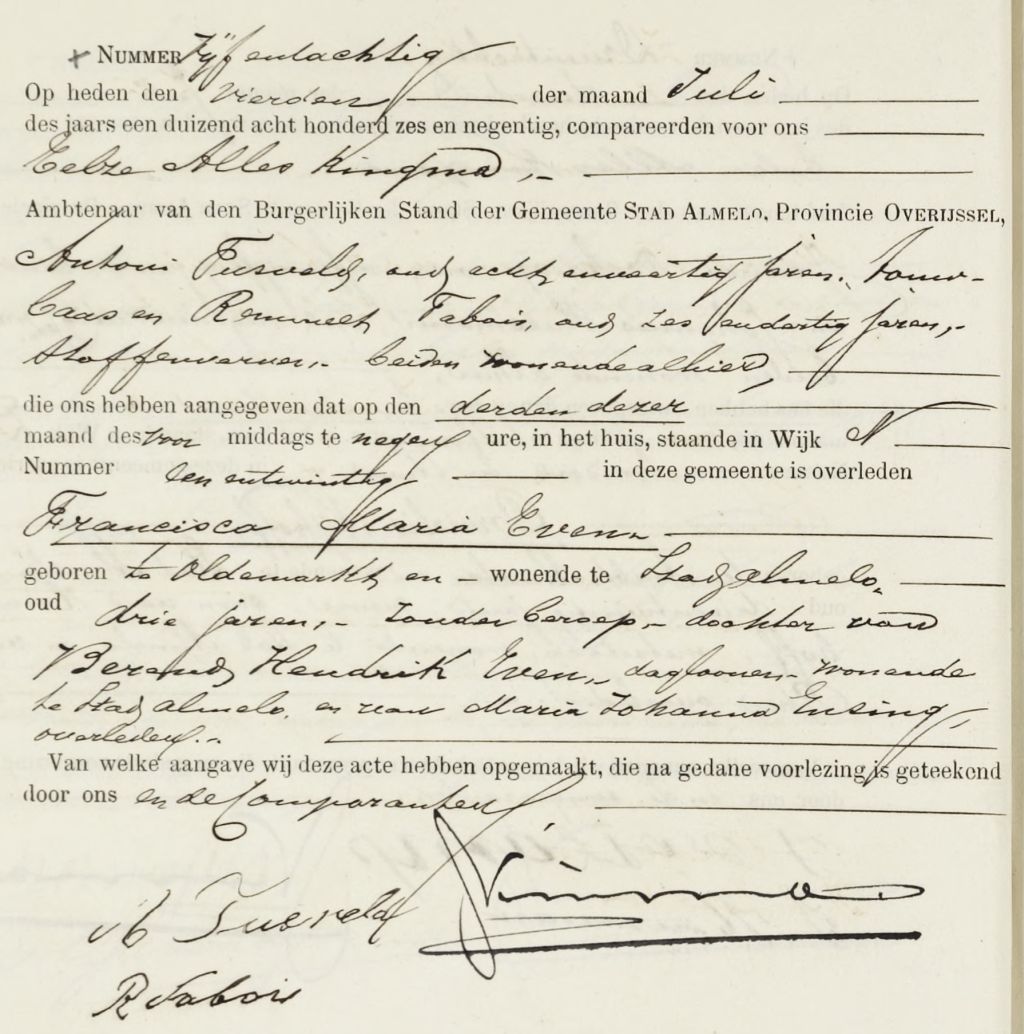 NUMMER Vijfentachtig
Op heden den vierden der maand Juli
des jaars een duizend acht honderd zes en negentig, compareerden voor ons
Eelze Alles Kingma,
Ambtenaar van den Burgerlijken Stand der Gemeente STAD ALMELO, Provincie OVERIJSSEL,
Antoni Tusveld, oud acht enveertig jaren, touw-
baas en Remmelt Fabois, oud zes endertig jaren,
stoffenverver, beiden wonende alhier,
die ons hebben aangegeven dat op den derden dezer
maand des voor middags te negen ure, in het huis, staande in Wijk N
Nummer een entwintig in deze gemeente is overleden
Francisca Maria Even
geboren te Oldemarkt en wonende te Stad Almelo,
oud drie jaren, zonder beroep, dochter van
Berend Hendrik Even, dagloner, wonende
te Stad Almelo, en van Maria Johanna Ensing,
overleden.
Van welke aangave wij deze acte hebben opgemaakt, die na gedane voorlezing is geteekend
door ons en de Comparanten
Tusveld Kingma
R Fabois